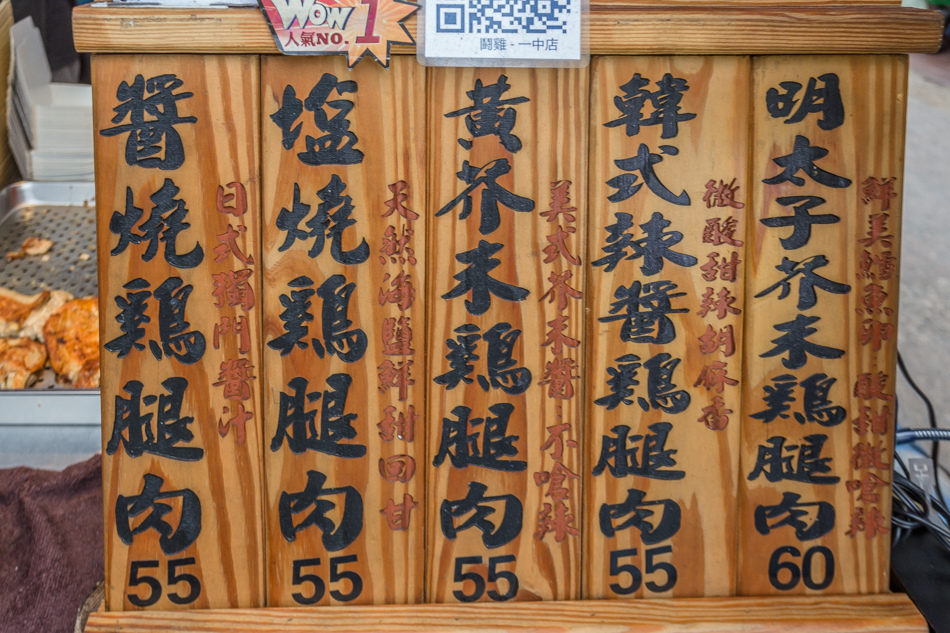 WOW
人氣NO.1
鬪雞 - 一中店
醬燒鷄腿肉
55
日式獨門醬汁
塩燒鷄腿肉
55
天然海鹽鮮甜回甘
黃芥末鷄腿肉
55
美式芥末醬不嗆辣
韓式辣醬鷄腿肉
55
微酸甜辣胡麻香
明太子芥末鷄腿肉
60
鮮美鱈魚卵 酸甜微嗆辣